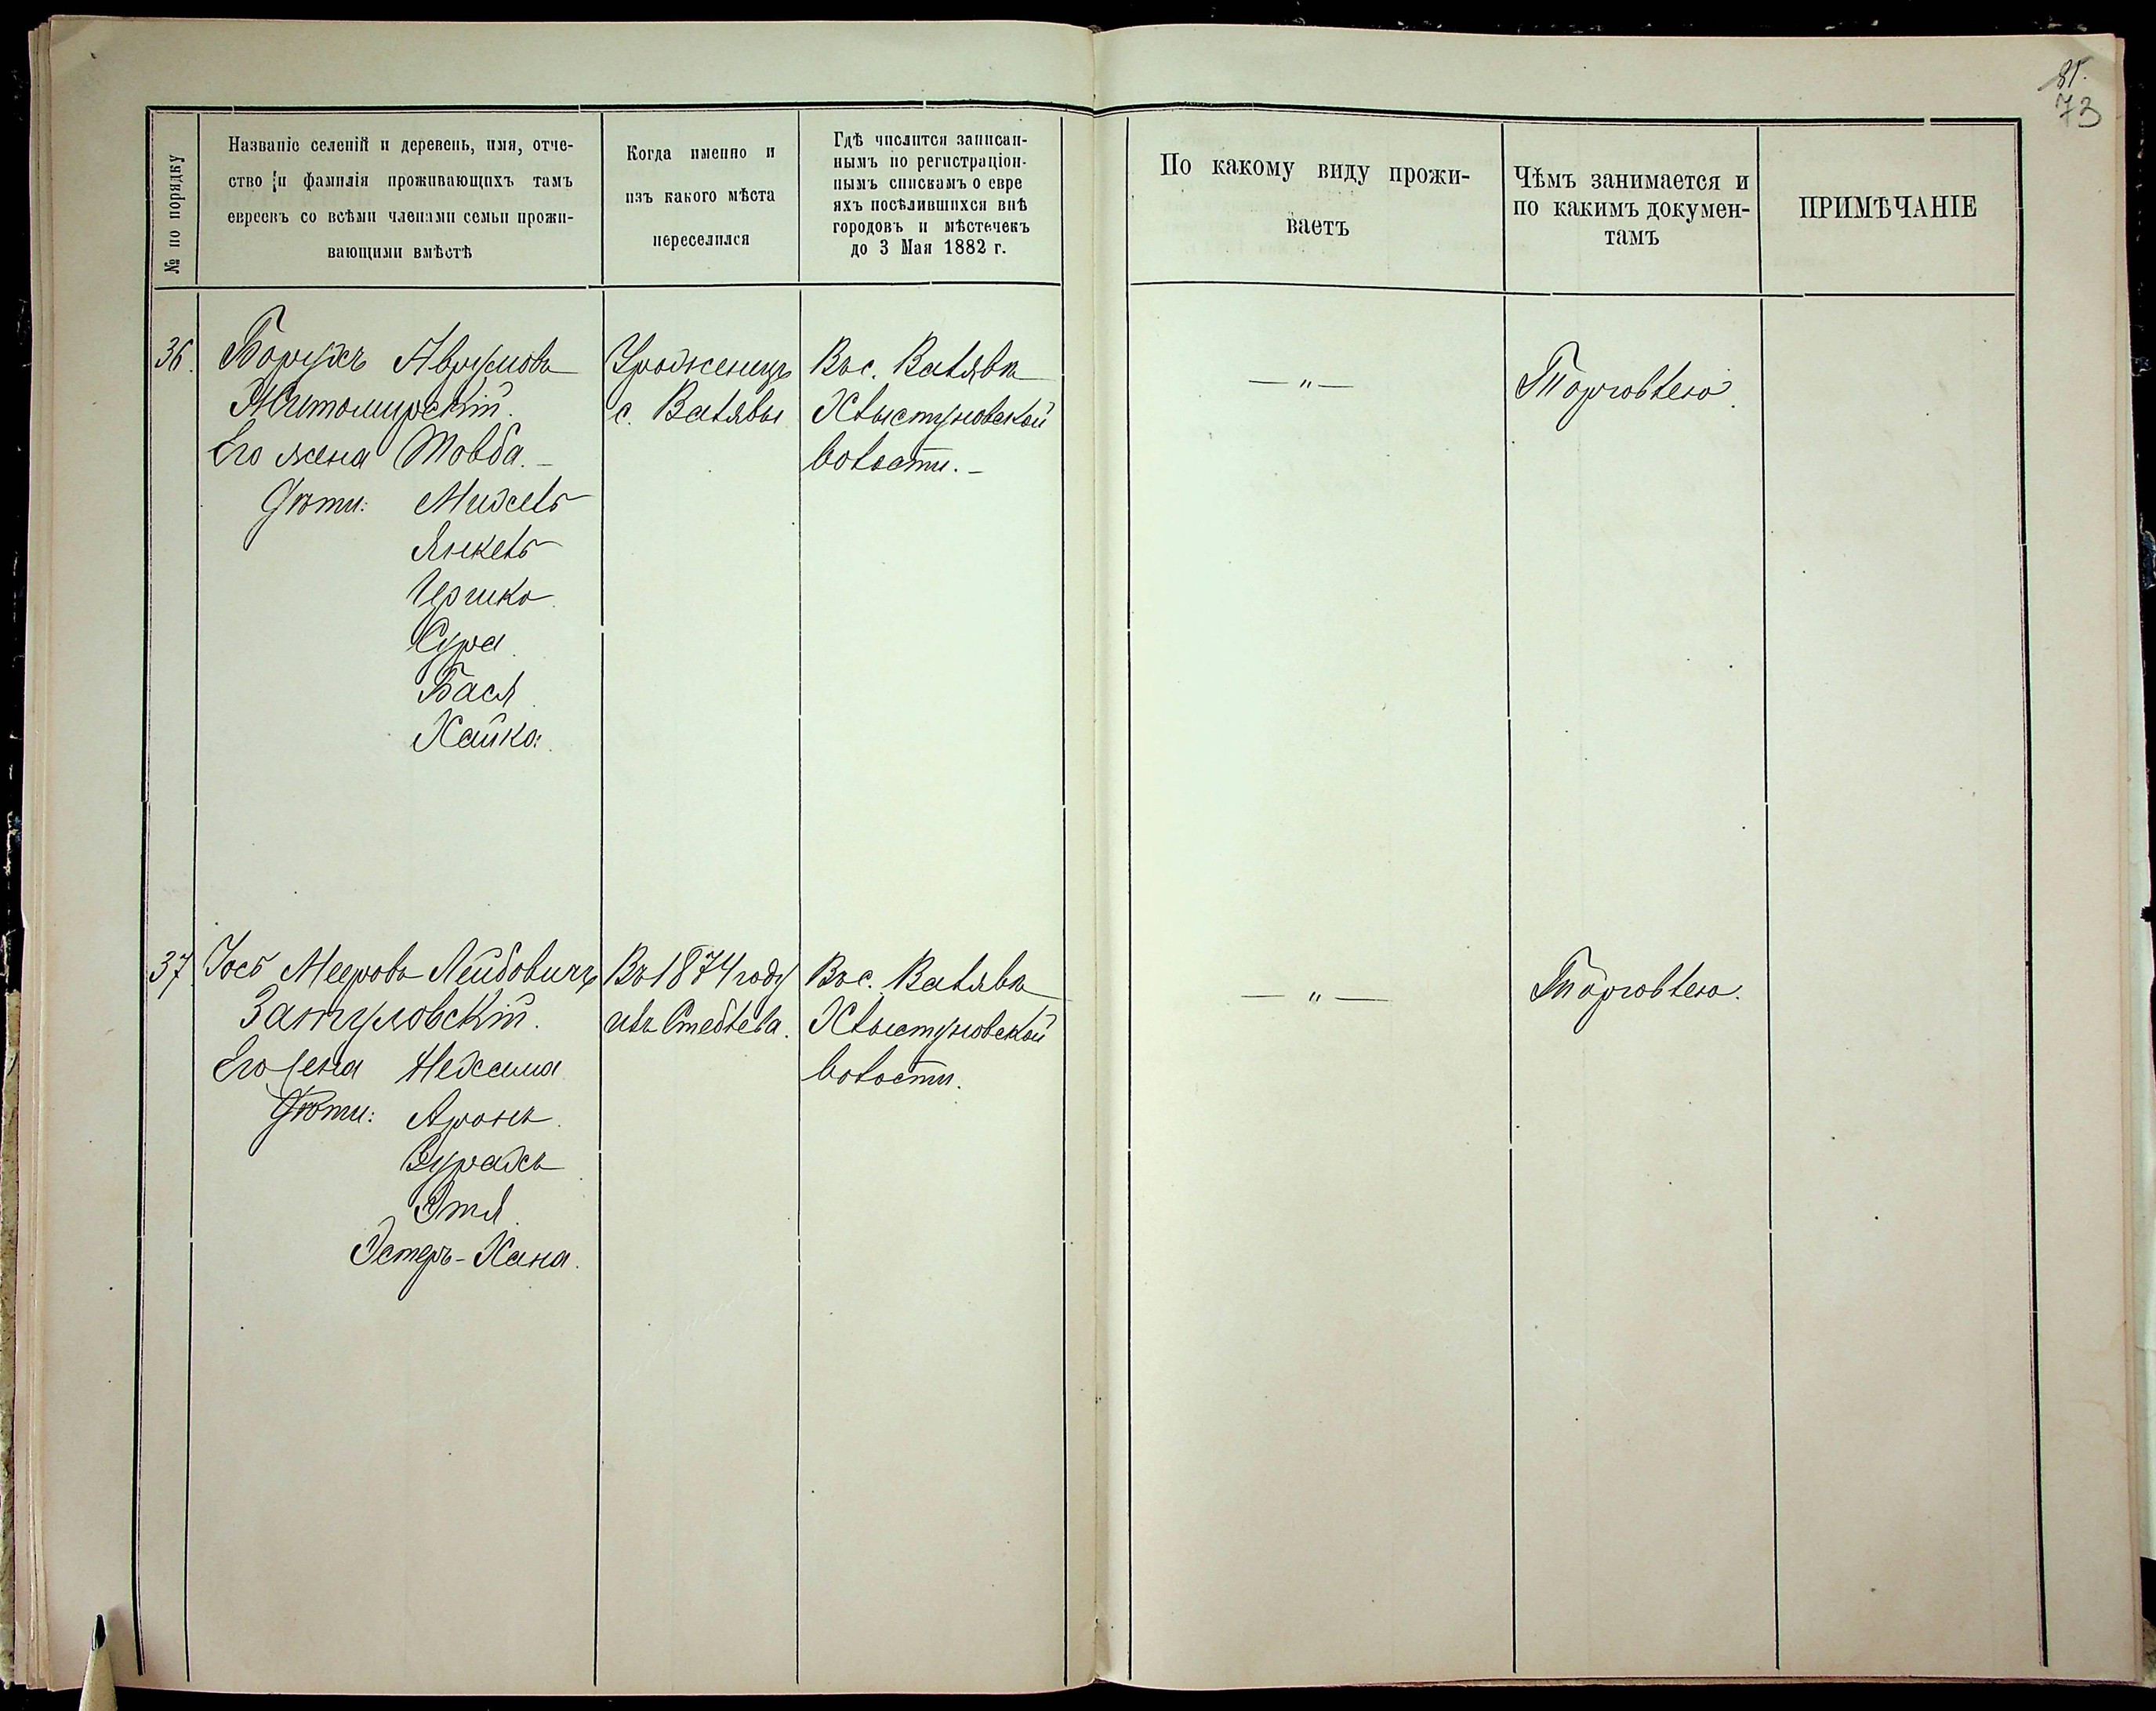 81.
73
№ по порядку
Названіе селеній и деревень, имя, отче-
ство и фамилія проживающихъ тамъ
евреевъ со всѣми членами семьи прожи-
вающими вмѣстѣ
Когда именно и
изъ какого мѣста
переселился
Гдѣ числится записан-
нымъ по регистраціон-
нымъ спискамъ о евре
яхъ посѣлившихся внѣ
городовъ и мѣстечекъ
до 3 Мая 1882 г.
По какому виду прожи-
ваетъ
Чѣмъ занимается и
по какимъ докумен-
тамъ
ПРИМѢЧАНІЕ
36.
Борухъ Аврумовъ
Житомирскій.
Его жена Товба. -
Дѣти: Михель
Янкель
Гершко.
Сура.
Бася.
Хайка.
Уроженецъ
с. Валявы
Въ с. Валявѣ
Хлыстуновской
волости. -
— " —
Торговлею.
37.
Іось Мееровъ Лейбовичъ
Затуловскій.
Его жена Нехама
Дѣти: Аронъ.
Зурахъ
Этя.
Эстеръ-Хана.
Въ 1874 году
изъ Стеблева.
Въ с. Валявѣ
Хлыстуновской
волости.
— " —
Торговлею.